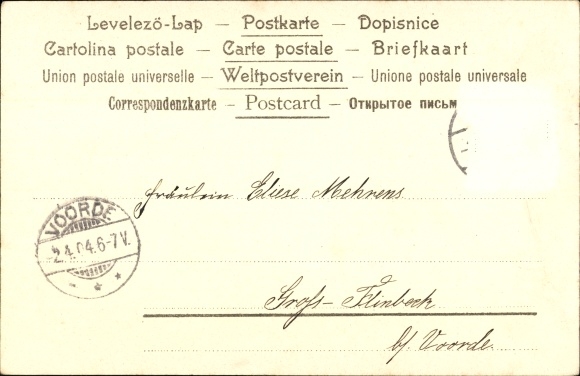 Levelező-Lap — Postkarte — Dopisnice
Cartolina postale — Carte postale — Briefkaart
Union postale universelle — Weltpostverein — Unione postale universale
Correspondenzkarte — Postcard — Открытое письм
Fräulein Eliese Mehrens
VOORDE
2.4.04.6-7V.
Groß-Flinbeck
b/ Voorde.